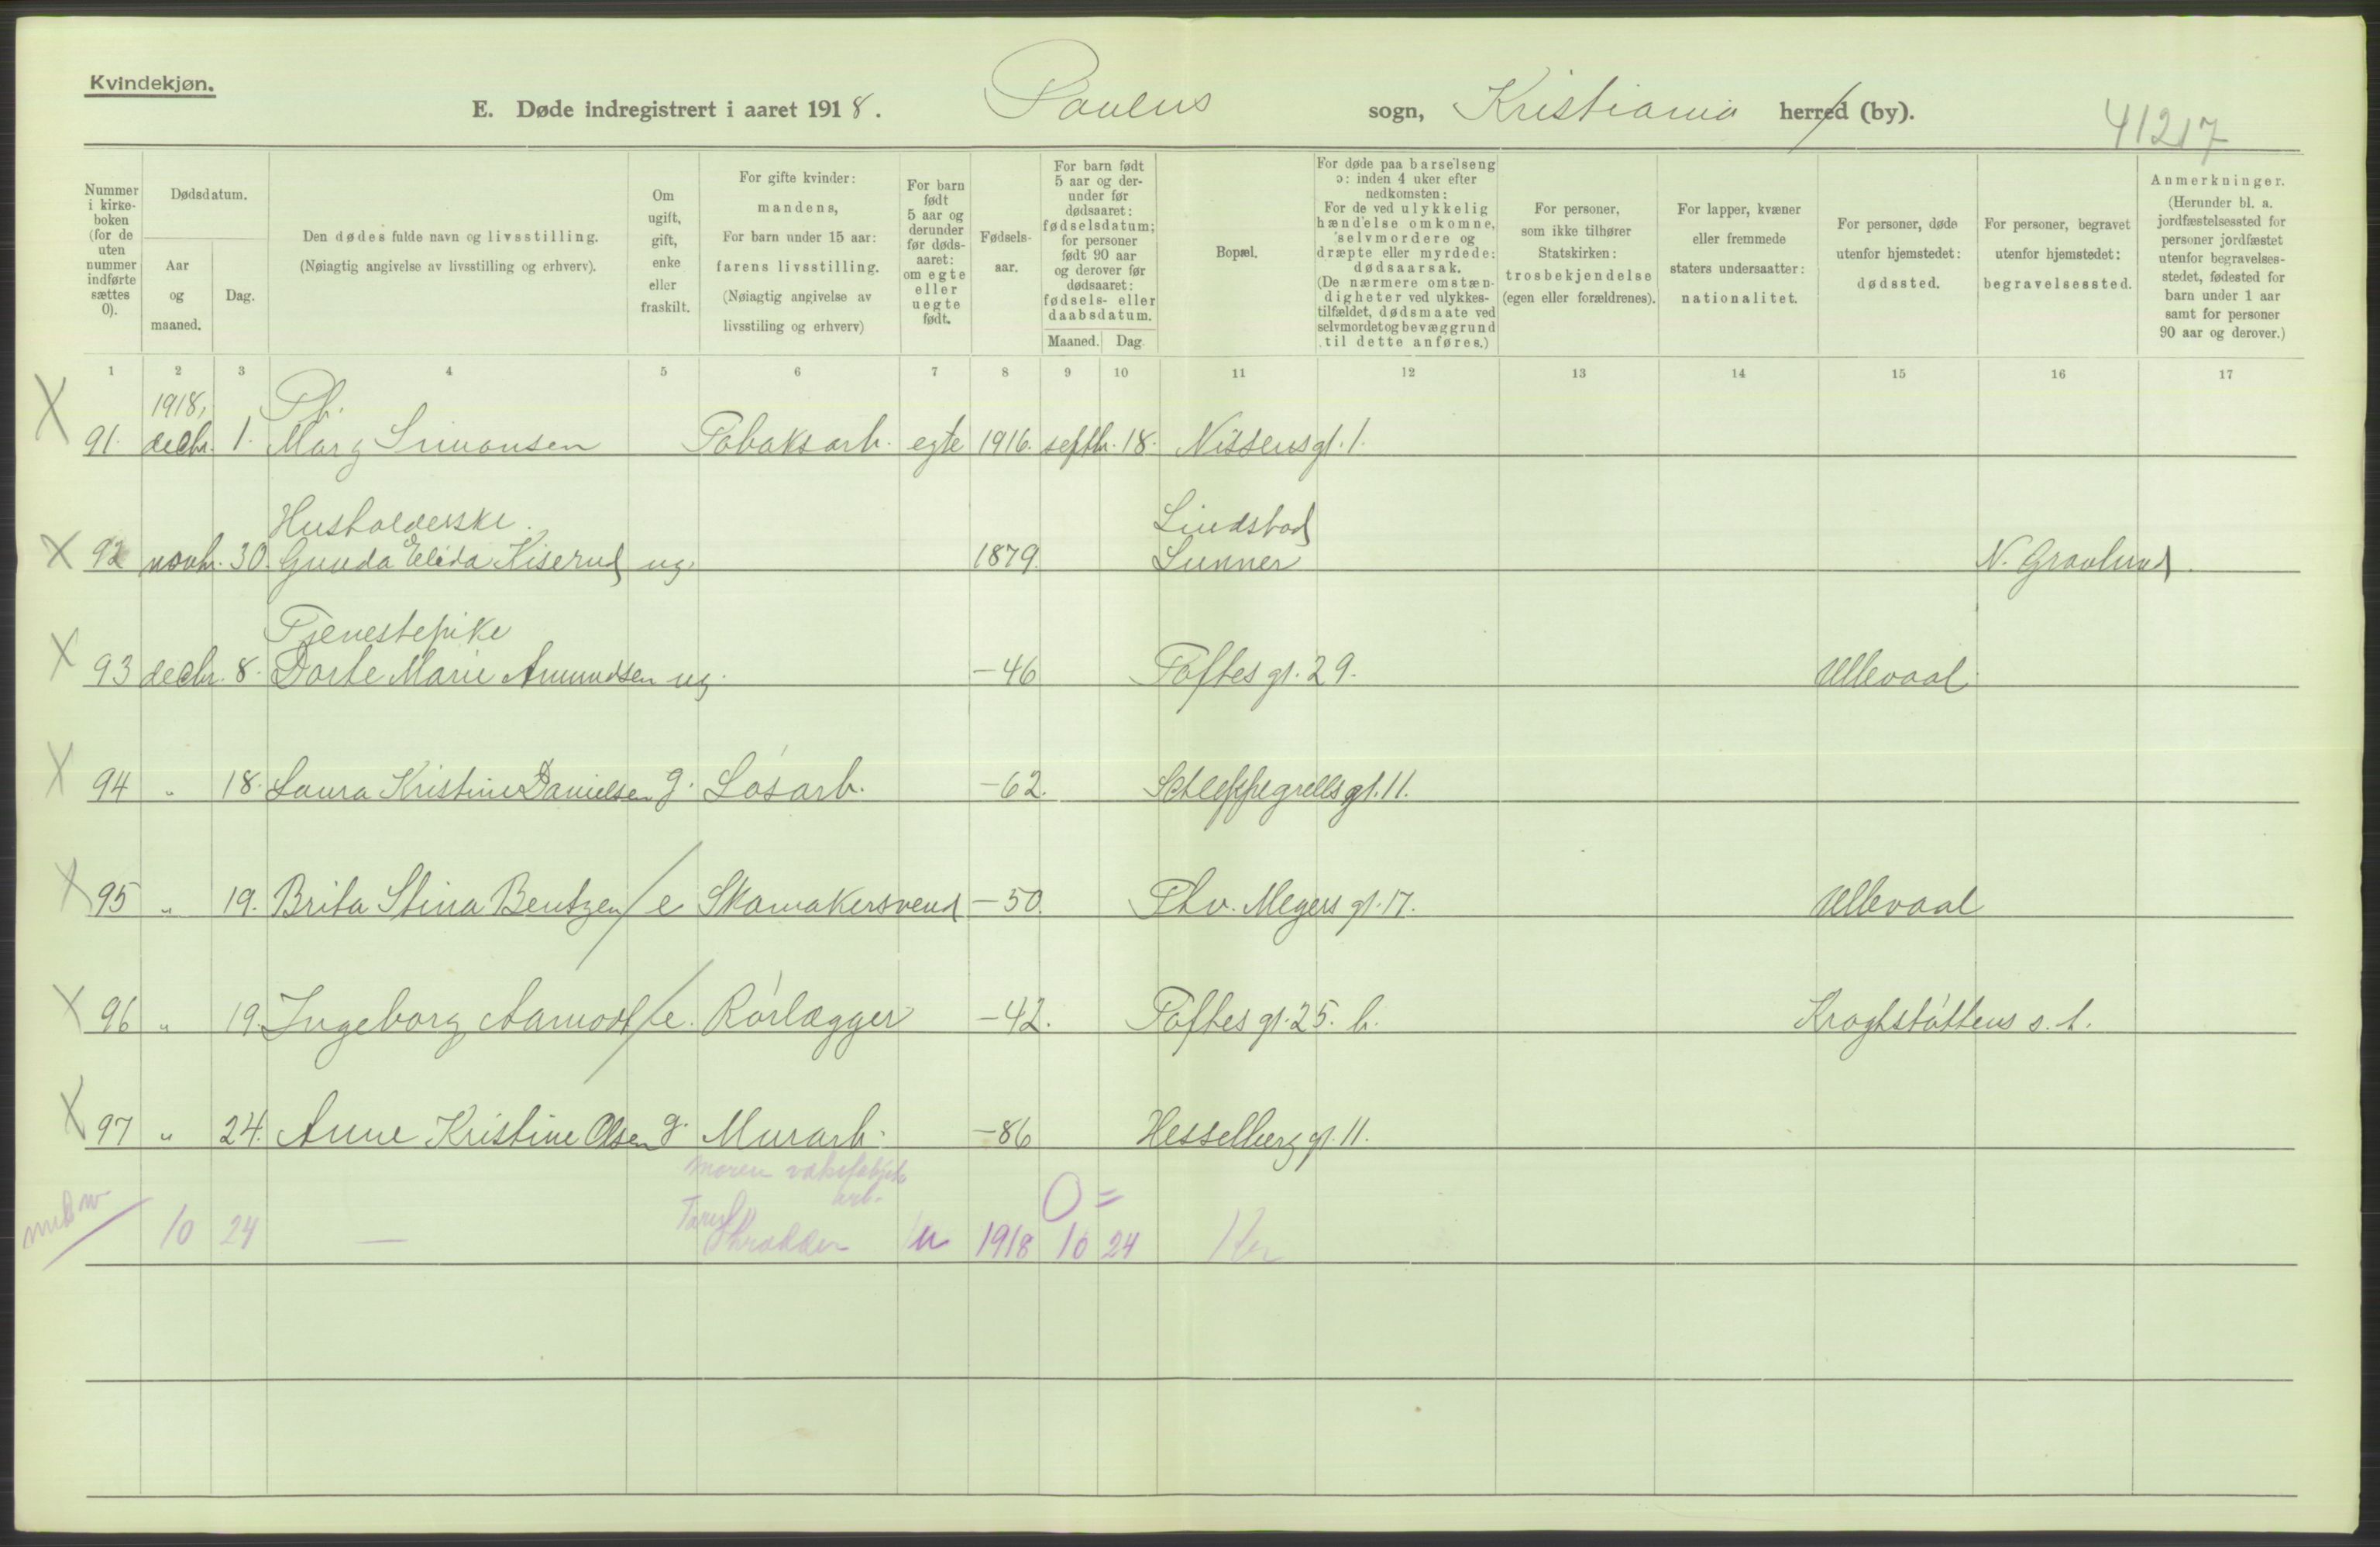 Kvindekjøn.
E. Døde indregistrert i aaret 1918. Paulus sogn, Kristiania herred (by).
41217
Nummer i kirke-boken (for de uten nummer indførte sættes 0).
Dødsdatum.
Aar og maaned.
Dag.
Den dødes fulde navn og livsstilling.
(Nøiagtig angivelse av livsstilling og erhverv).
Om ugift, gift, enke eller fraskilt.
For gifte kvinder:
mandens,
For barn under 15 aar:
farens livsstilling.
(Nøiagtig angivelse av
livsstiling og erhverv)
For barn født 5 aar og derunder før døds-aaret: om egte eller uegte født.
Fødsels-aar.
For barn født 5 aar og der-under før dødsaaret: fødselsdatum; for personer født 90 aar og derover før dødsaaret: fødsels- eller daabsdatum.
Maaned. Dag.
Bopæl.
For døde paa barselseng ɔ: inden 4 uker efter nedkomsten:
For de ved ulykkelig hændelse omkomne, selvmordere og dræpte eller myrdede: dødsaarsak.
(De nærmere omstæn-digheter ved ulykkes-tilfældet, dødsmaate ved selvmord et og bevæggrund til dette anføres.)
For personer, som ikke tilhører Statskirken: trosbekjendelse (egen eller forældrenes).
For lapper, kvæner eller fremmede staters undersaatter: nationalitet.
For personer, døde utenfor hjemstedet: dødssted.
For personer, begravet utenfor hjemstedet: begravelsessted.
Anmerkninger.
(Herunder bl. a. jordfæstelsessted for personer jordfæstet utenfor begravelses-stedet, fødested for barn under 1 aar samt for personer 90 aar og derover.)
1 2 3 4 5 6 7 8 9 10 11 12 13 14 15 16 17
1918,
X 91. decbr. 1. Mary Simonsen Tobaksarb. egte 1916. septbr. 18. Nissens gt. 1.
Husholderske. Lindstad
X 92 novbr. 30. Gunda Elida Kiserud ug. 1879. Lunner N. Gravlund.
Tjenestepike
X 93 decbr. 8. Dorte Marie Amundsen ug. -46 Toftes gt. 29. Ullevaal
X 94 " 18. Laura Kristine Danielsen g. Løsarb. -62. Schleppegrells gt. 11.
X 95 " 19. Brita Stina Bentzen / e Skomakersvend -50. Thv. Meyers gt. 17. Ullevaal
X 96 " 19. Ingeborg Aamodt / e. Rørlægger -42. Toftes gt. 25. b. Kroghstøttens s. h.
X 97 " 24. Anne Kristine Olsen g. Murarb. -86 Hesselberg gt. 11.
moren
arb. 0 =
10 24 — u 1918 10 24 Her